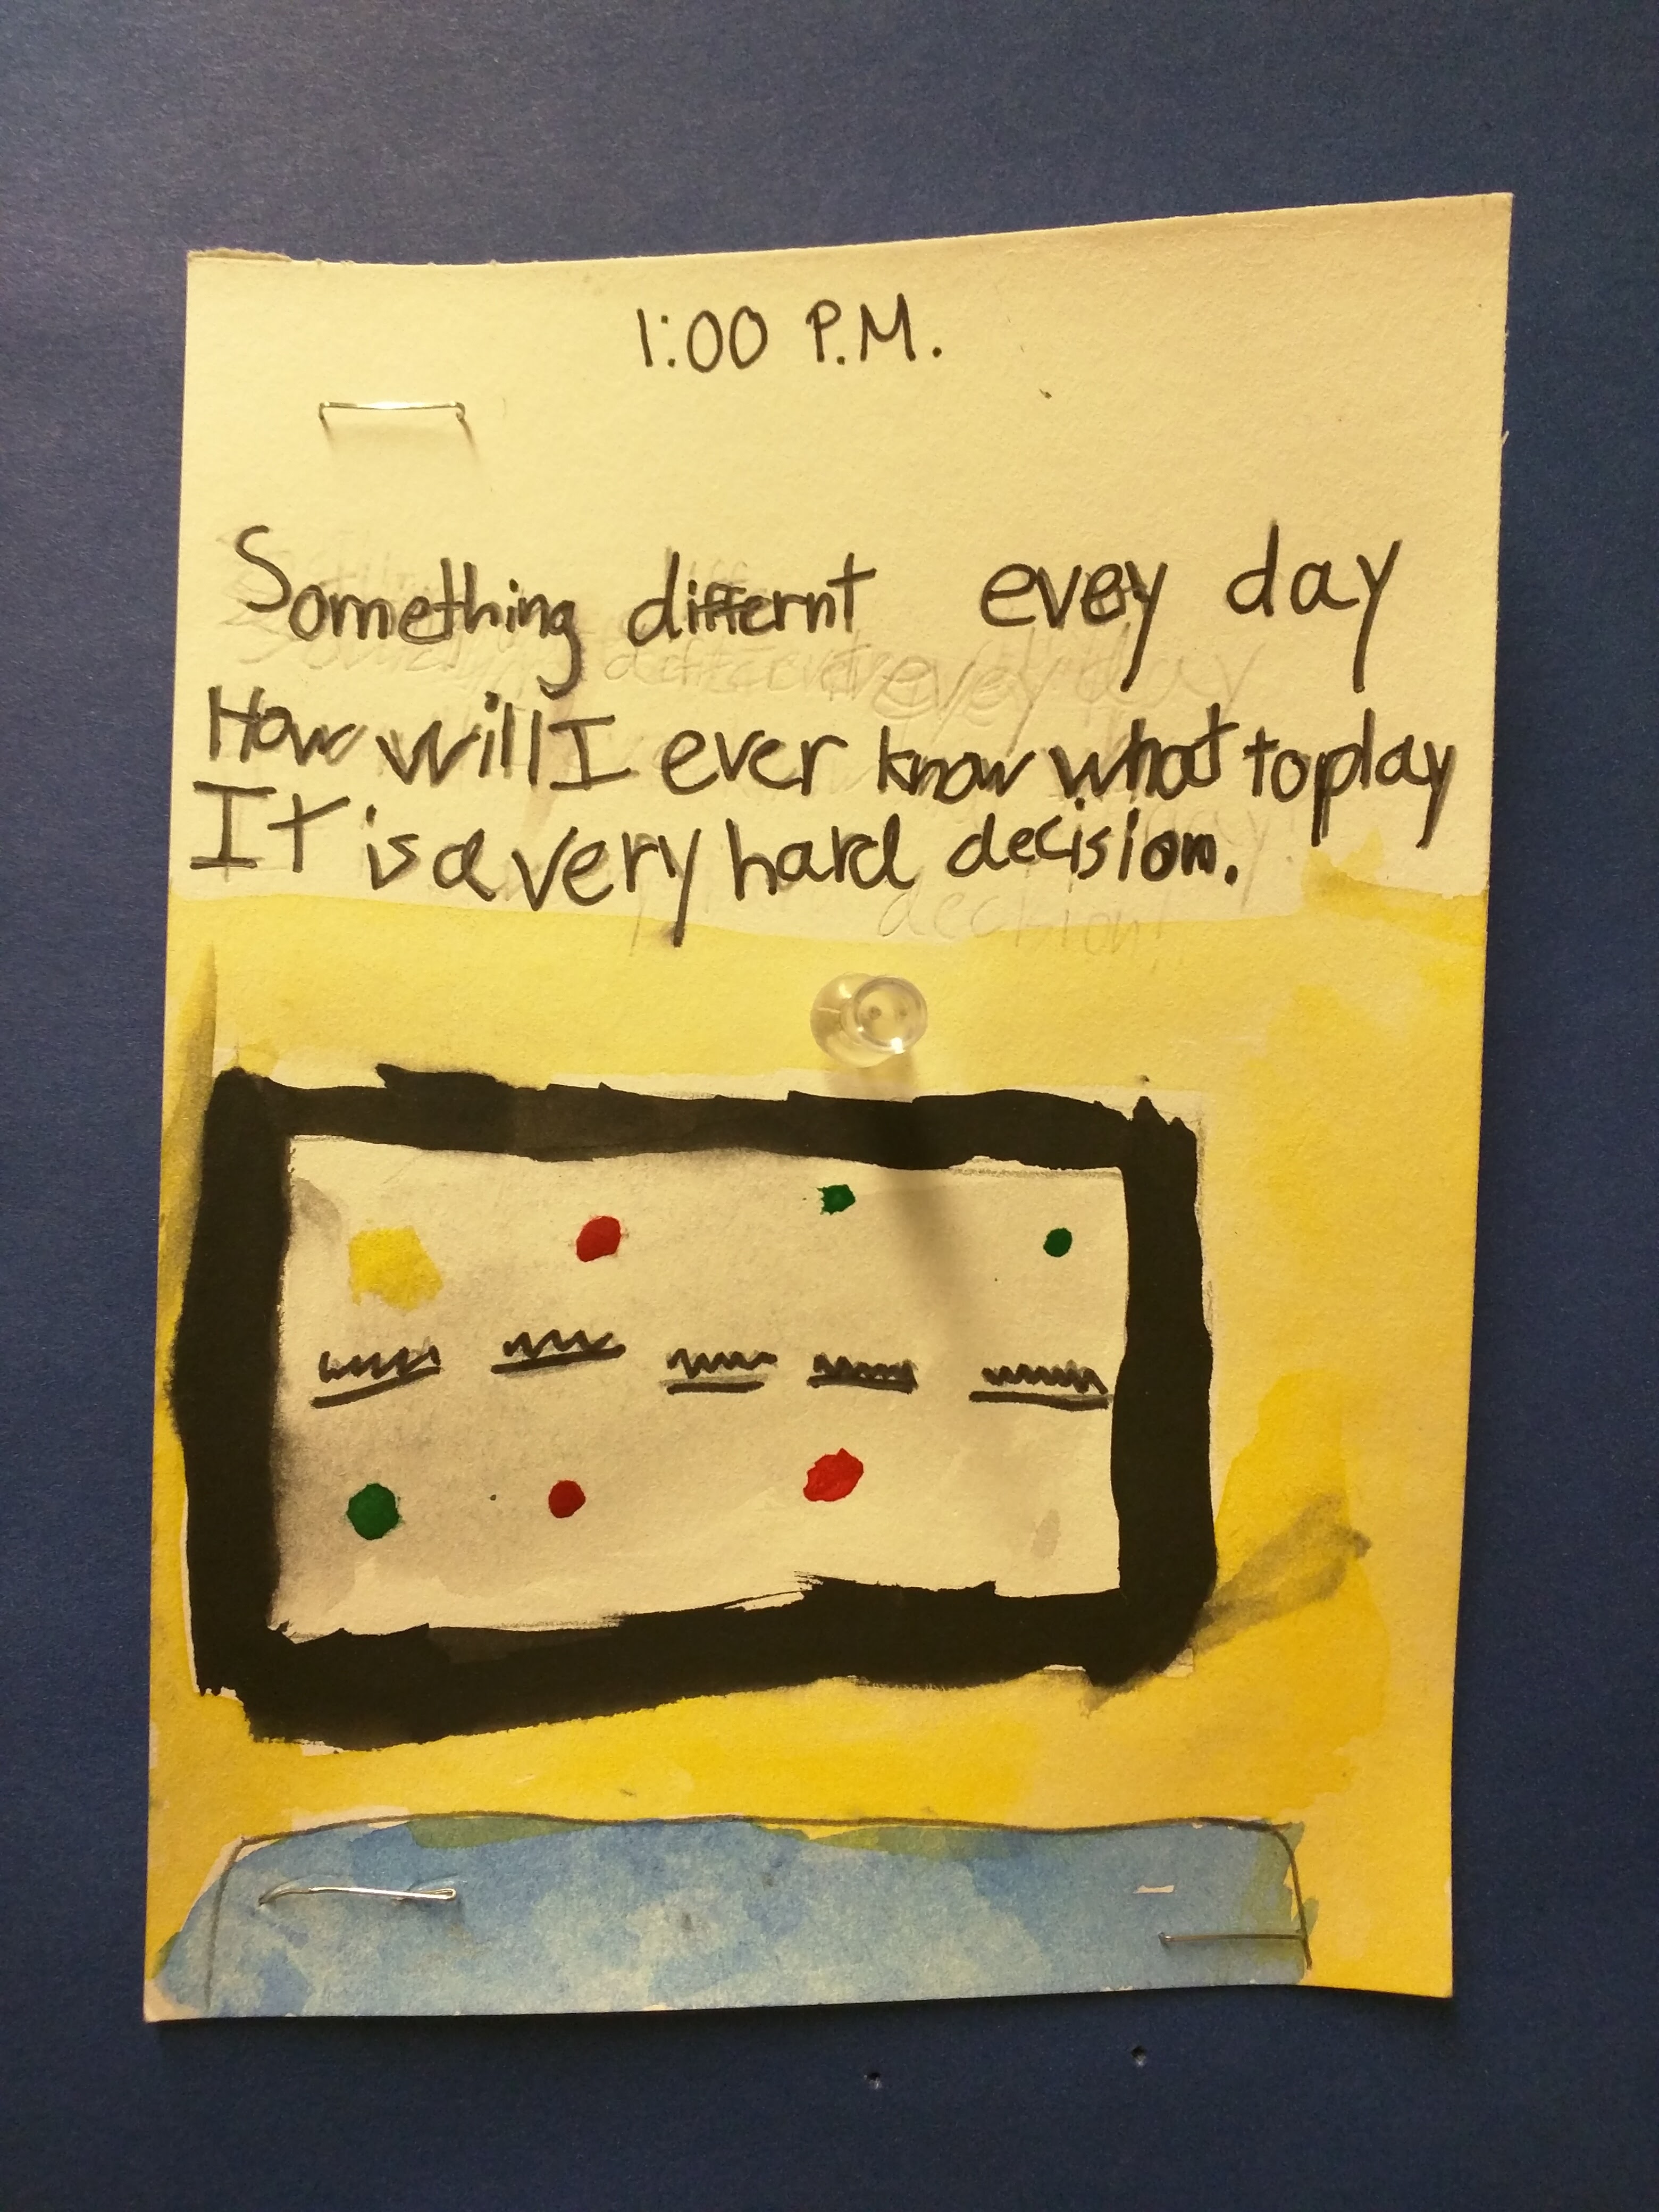 1:00 P.M.
Something differnt evey day
How will I ever know what to play
It is a very hard decision.